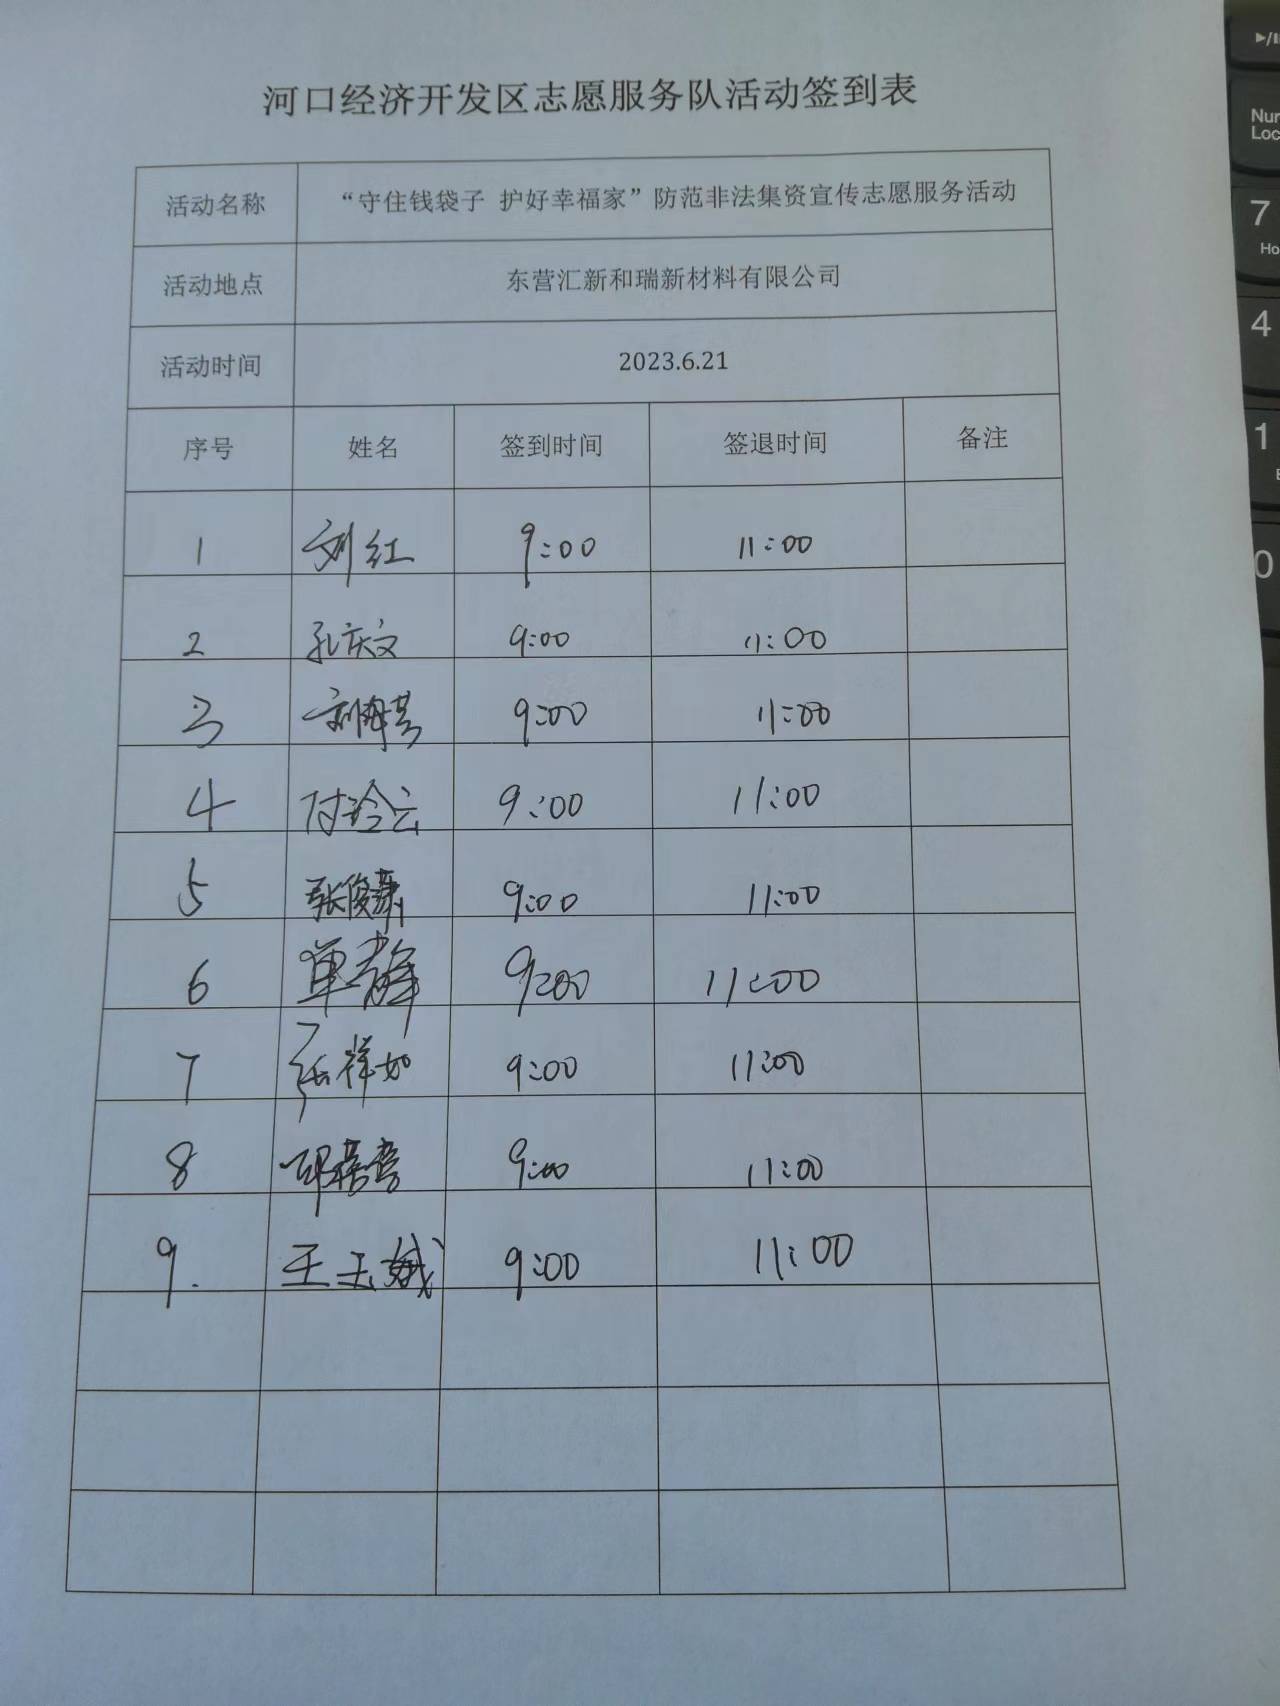 河口经济开发区志愿服务队活动签到表
活动名称 “守住钱袋子 护好幸福家”防范非法集资宣传志愿服务活动
活动地点 东营汇新和瑞新材料有限公司
活动时间 2023.6.21
序号 姓名 签到时间 签退时间 备注
1 刘红 9:00 11:00
2 孔庆文 9:00 11:00
3 9:00 11:00
4 付玲云 9:00 11:00
5 张俊 9:00 11:00
6 单静 9:00 11:00
7 张祥如 9:00 11:00
8 9:00 11:00
9. 王玉娥 9:00 11:00
Num
Loc
7
Ho
4
1
0